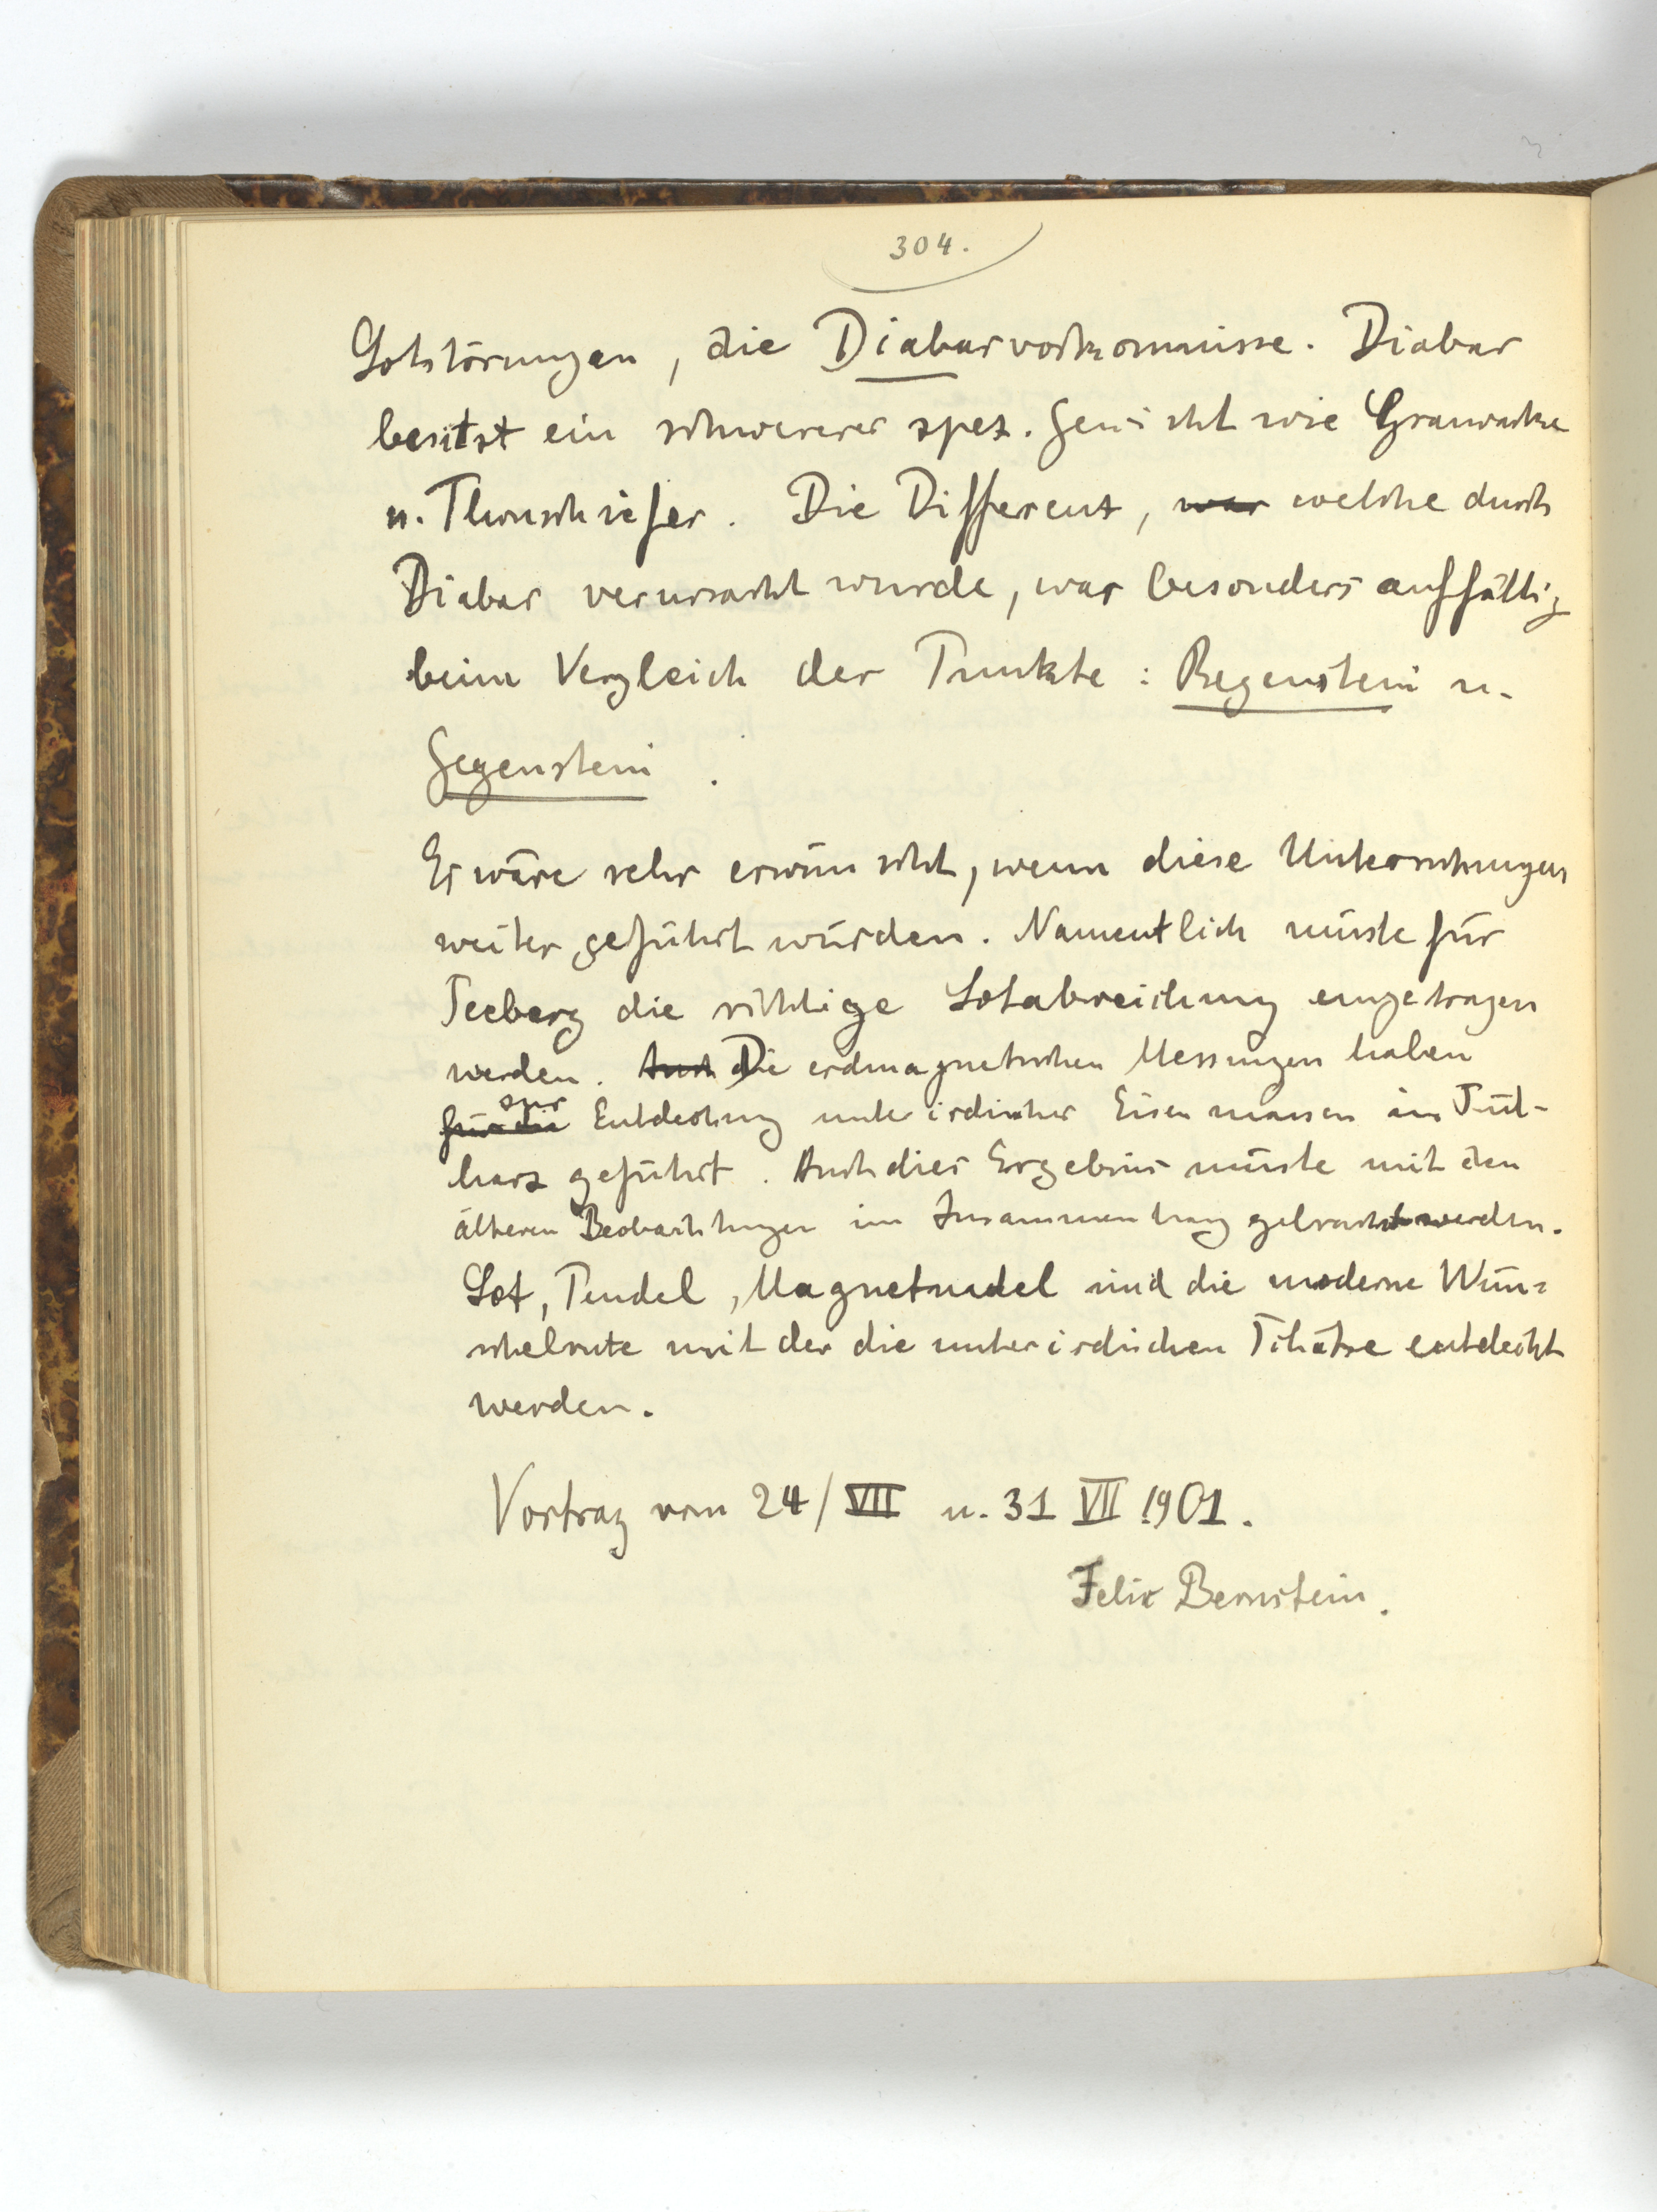 304.
Lotstörungen, die Diabasvorkommnisse. Diabas
besitzt ein schwereres spez. Gewicht wie Grauwacke
u. Thonschiefer. Die Differenz, war welche durch
Diabas verursacht wurde, war besonders auffällig
beim Vergleich der Punkte: Regenstein u.
Gegenstein.
Es wäre sehr erwünscht, wenn diese Untersuchungen
weiter geführt würden. Namentlich müsste für
Seeberg die richtige Lotabweichung eingetragen
werden. Auch Die erdmagnetischen Messungen haben
für die zur Entdeckung unterirdischer Eisenmassen im Süd-
harz geführt. Auch dies Ergebnis müsste mit den
älteren Beobachtungen im Zusammenhang gebracht werden.
Lot, Pendel, Magnetnadel sind die moderne Wün-
schelrute mit der die unterirdischen Schätze entdeckt
werden.
Vortrag vom 24/VII u. 31 VII 1901.
Felix Bernstein.